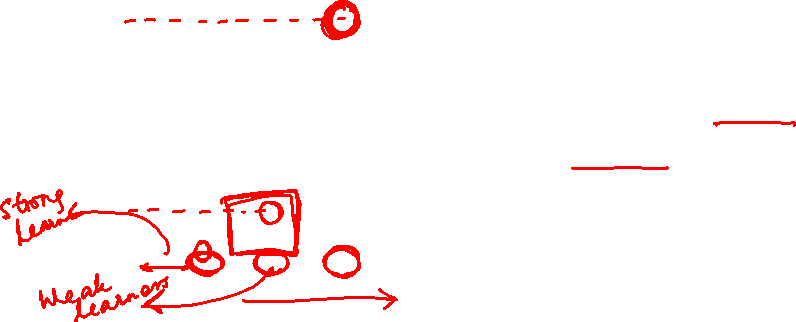 strong
learner
weak
learners